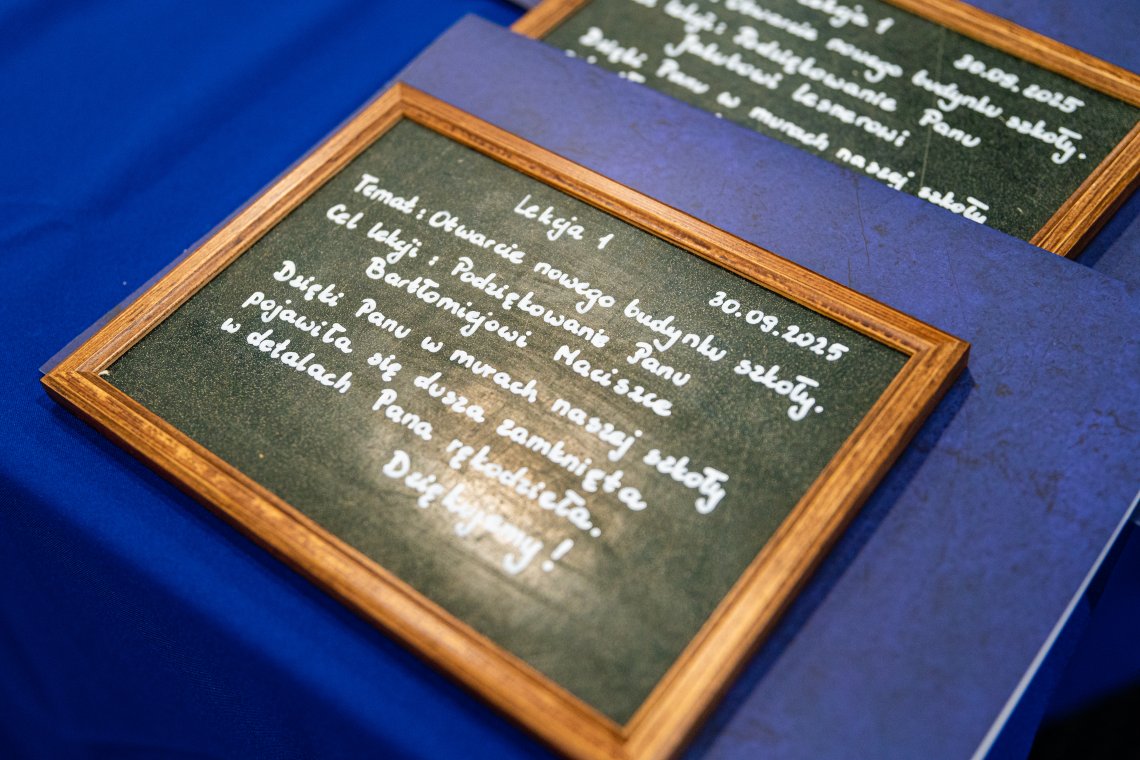 Lekcja 1
30.09.2025
Temat: Otwarcie nowego budynku szkoły.
Cel lekcji: Podziękowanie Panu
Bartłomiejowi Maciszce
Dzięki Panu w murach naszej szkoły
pojawiła się dusza zamknięta
w detalach Pana rękodzieła.
Dziękujemy!
Lekcja 1
30.09.2025
Otwarcie nowego budynku szkoły.
lekcji: Podziękowanie Panu
Jakubowi
Dzięki Panu w murach naszej szkoły